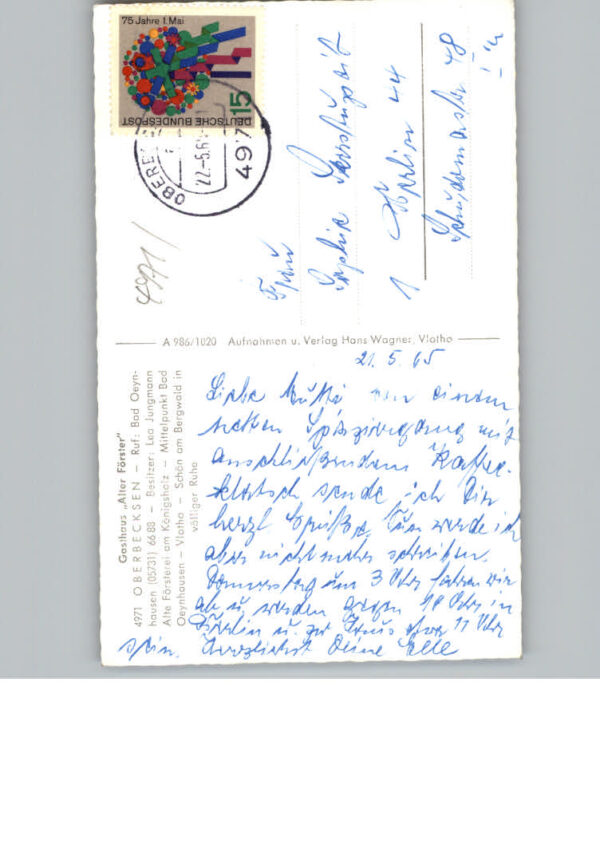 75 Jahre 1. Mai
15
DEUTSCHE BUNDESPOST
497
22.-5.6
Frau
Sophie
1 Berlin 44
48
A 986/1020 Aufnahmen u. Verlag Hans Wagner, Vlotho
4971
Gasthaus „Alter Förster"
4971 OBERBECKSEN – Ruf: Bad Oeyn-
hausen (05731) 66 88 – Besitzer: Leo Jungmann
Alte Försterei am Königsholz – Mittelpunkt Bad
Oeynhausen – Vlotho – Schön am Bergwald in
völliger Ruhe
21. 5. 65
Liebe Mutti von einem
netten Spaziergang mit
anschließendem Kaffee-
klatsch sende ich Dir
herzl Grüße. Nun werde ich
aber nicht mehr schreiben.
Donnerstag um 3 Uhr fahren wir
ab u. werden gegen 10 Uhr in
Berlin u. zu Haus 11 Uhr
sein. Herzlichst Deine